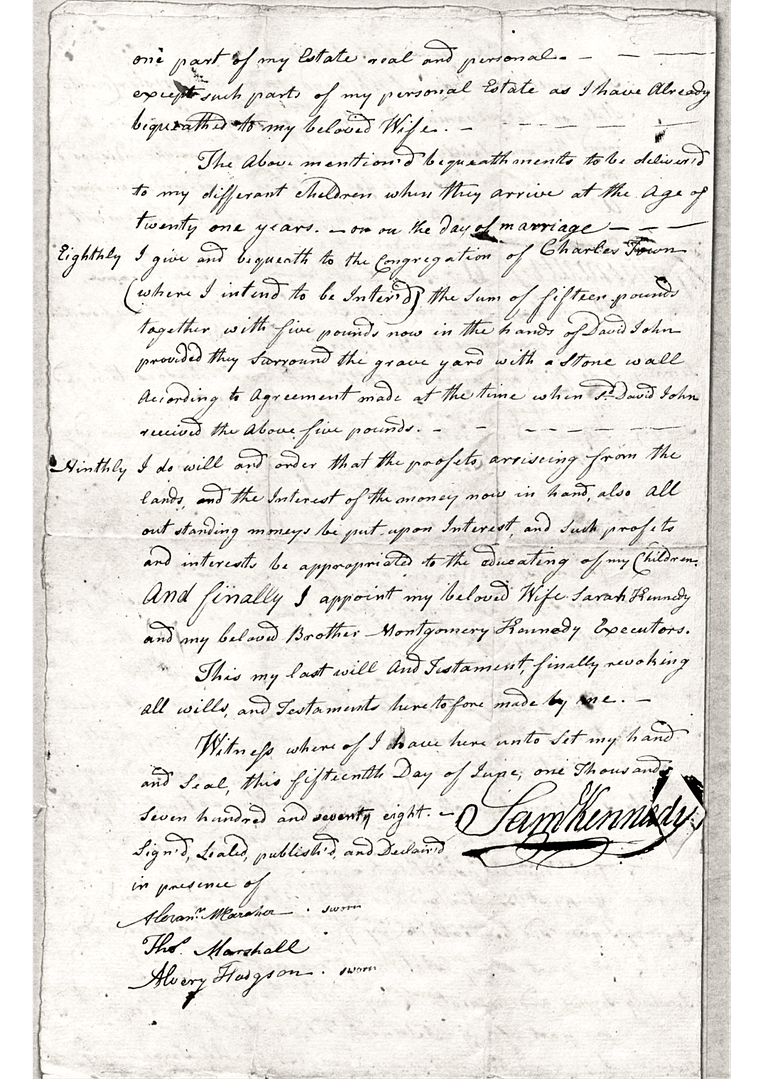 one part of my Estate real and personal. -
except such parts of my personal Estate as I have Already
bequeathed to my beloved Wife. -
The Above mention'd bequeathments to be deliver'd
to my differant children when they arrive at the Age of
twenty one years. - or on the day of marriage
Eighthly I give and bequeath to the Congregation of Charles Town
(where I intend to be Inter'd) the sum of fifteen pounds
together with five pounds now in the hands of David John
provided they surround the grave yard with a stone wall
Acording to Agreement made at the time when sd. David John
received the Above five pounds. -
Ninthly I do will and order that the profets arriseing from the
lands, and the Interest of the money now in hand, also All
out standing moneys be put upon Interest, and such profets
and interests be appropriated to the educating of my Children.
And finally I appoint my beloved Wife Sarah Kennedy
and my beloved Brother Montgomery Kennedy Executors.
This my last will And Testament, finally revoking
all wills, and Testaments heretofore made by me. -
Witness where of I have here unto set my hand
and Seal, this fifteenth Day of June, one Thousand
seven hundred and seventy eight. - Sam Kennedy
Sign'd, Seal'd, publish'd, and Declair'd
in presence of
sworn
Thos. Marshall
Alvery Hodgson . sworn